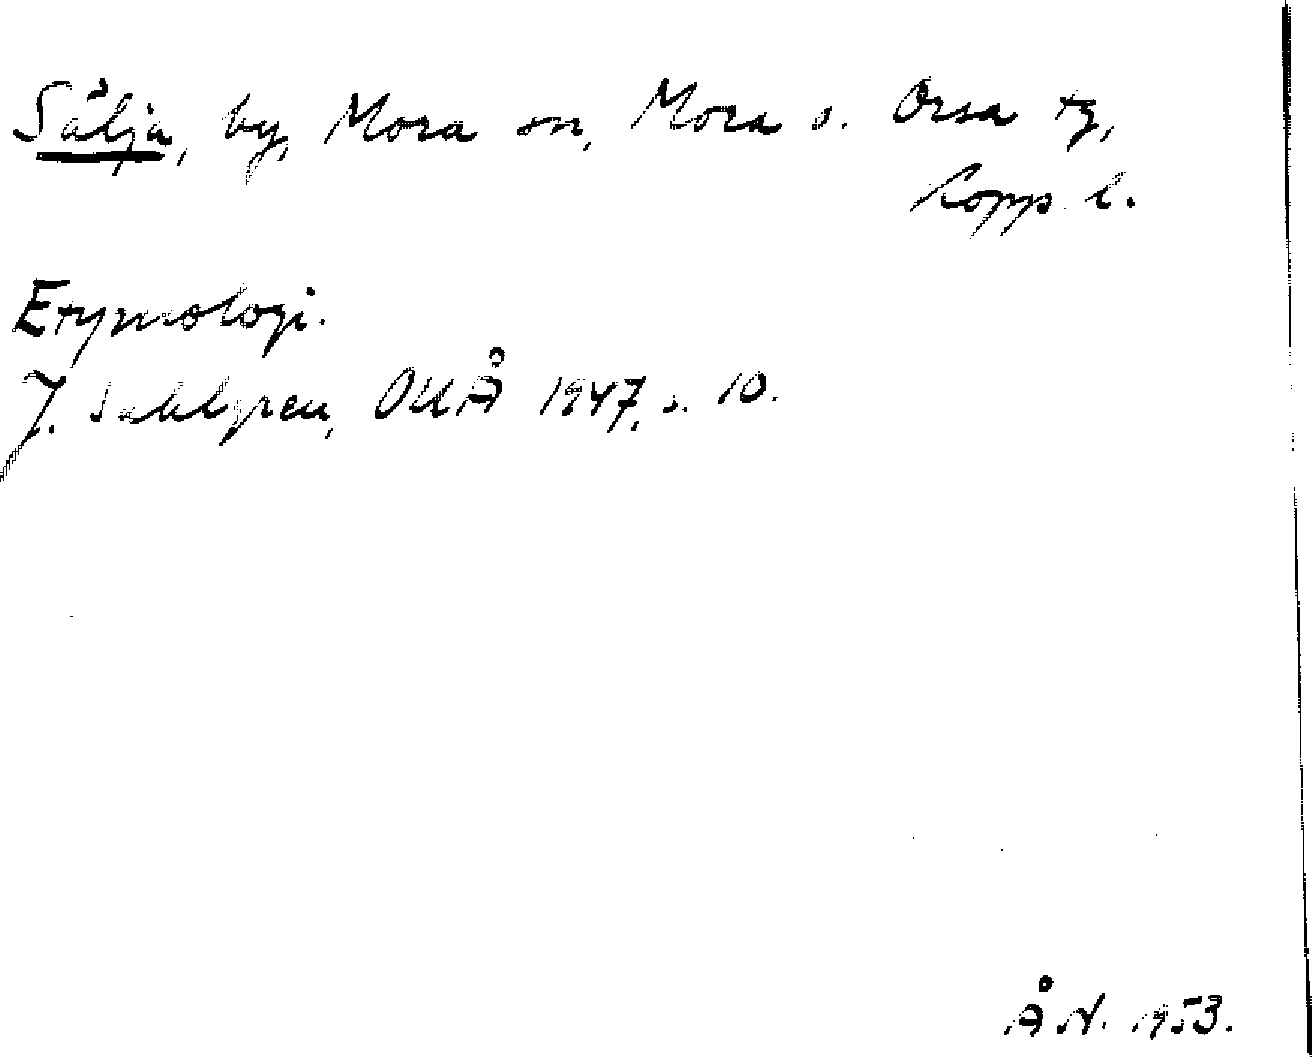 Sälja, by, Mora sn, Mora o. Orsa tg,
Kopp. l.
Etymologi.
J. Sahlgren, OUÅ 1947, s. 10.
Å N. 1953.